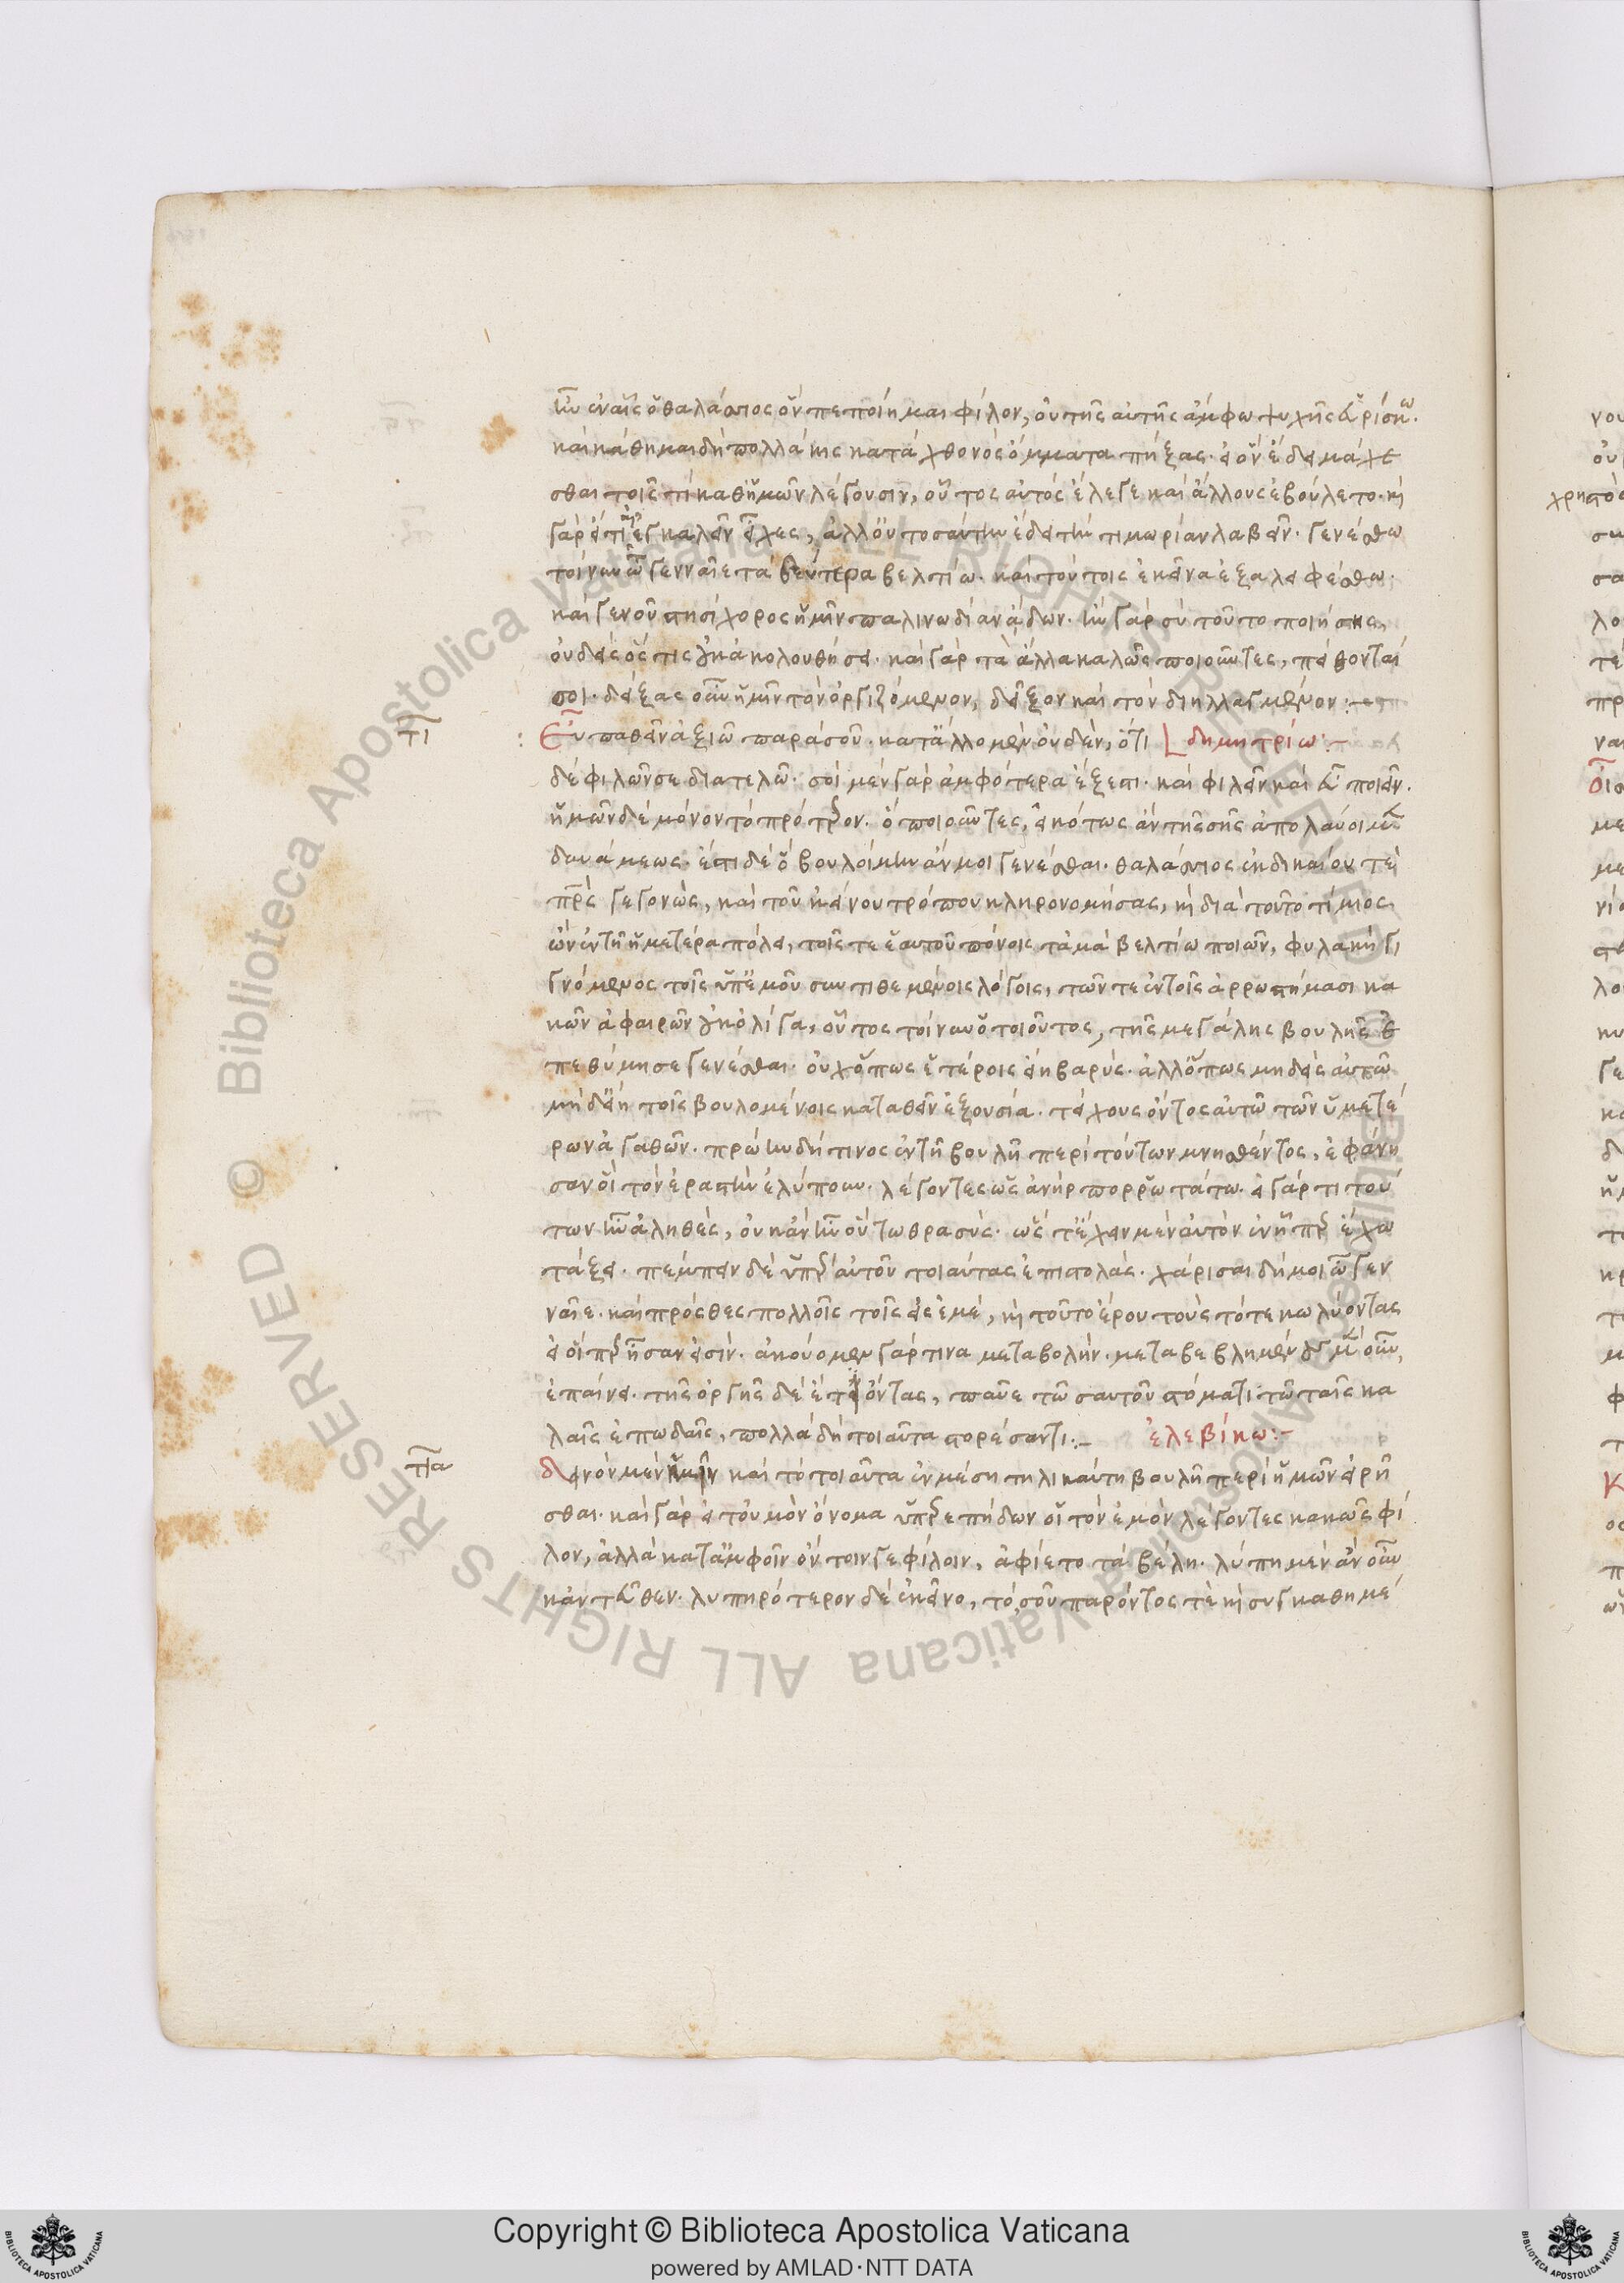 ἦν ἐν αἷς ὁ θαλάσσιος ὃν πεποίημαι φίλον, οὗ τῆς αὐτῆς ἄμφω ψυχῆς εὑρίσκω.
καὶ κάθημαι δὴ πολλάκις κατὰ χθονὸς ὄμματα πήξας. εἰ οὖν ἔδει μάχε
σθαι τοῖς τι καθ' ἡμῶν λέγουσιν, οὗτος αὐτὸς ἔλεγε καὶ ἄλλους ἐβούλετο. καὶ
γὰρ εἴ τι ἄρ' ἐγκαλεῖν εἶχες, ἀλλ' οὐ τοσαύτην ἔδει τὴν τιμωρίαν λαβεῖν. γενέσθω
τοίνυν ὦ γενναῖε τὰ δεύτερα βελτίω. καὶ τούτοις ἐκεῖνα ἐξαλειφέσθω.
καὶ γενοῦ στησίχορος ἡμῖν παλινωδίαν ἄδων. ἢν γὰρ σὺ τοῦτο ποιήσης,
οὐδεὶς ὅστις οὐκ ἀκολουθήσει. καὶ γὰρ τὰ ἄλλα καλῶς ποιοῦντες, πείθονταί
σοι. δείξας οὖν ἡμῖν τὸν ὀργιζόμενον, δεῖξον καὶ τὸν διηλλαγμένον:
Εὖ παθεῖν ἀξιῶ παρὰ σοῦ. κατ' ἄλλο μὲν οὐδὲν, ὅτι δημητρίω:
δὲ φιλῶν σε διατελῶ. σοὶ μὲν γὰρ ἀμφότερα ἔξεστι. καὶ φιλεῖν καὶ εὖ ποιεῖν.
ἡμῶν δὲ μόνον τὸ πρότερον. ὃ ποιοῦντες, εἰκότως ἂν τῆς σῆς ἀπολαύοιμεν
δυνάμεως. ἔστι δὲ ὃ βουλοίμην ἄν μοι γενέσθαι. θαλάσσιος ἐκ δικαίου τε
πατρὸς γεγονὼς, καὶ τοῦ ἐκείνου τρόπου κληρονομήσας, καὶ διὰ τοῦτο τίμιος
ὢν ἐν τῇ ἡμετέρα πόλει, τοῖς τε ἑαυτοῦ πόνοις τἀμὰ βελτίω ποιῶν, φυλακὴ γι
γνόμενος τοῖς ὑπ' ἐμοῦ συντιθεμένοις λόγοις, τῶν τε ἐν τοῖς ἀρρωστήμασι κα
κῶν ἀφαιρῶν οὐκ ὀλίγα, οὗτος τοίνυν ὁ τοιοῦτος, τῆς μεγάλης βουλῆς ἐ
πεθύμησε γενέσθαι. οὐχ ὅπως ἑτέροις εἴη βαρύς. ἀλλ' ὅπως μηδεὶς αὐτῶ
μηδ' εἴη τοῖς βουλομένοις καταθεῖν ἐξουσία. τείχους ὄντος αὐτῶ τῶν ὑμετέ
ρων ἀγαθῶν. πρώην δή τινος ἐν τῇ βουλῇ περὶ τούτων μνησθέντος, ἐφάνη
σαν οἳ τὸν ἐραστὴν ἐλύπουν. λέγοντες ὡς ἀνὴρ πορρωτάτω. εἰ γάρ τι τού
των ἦν ἀληθὲς, οὐκ ἂν ἦν οὕτω θρασύς. ὥστ' ἔχειν μὲν αὐτὸν ἐν ᾗπερ ἔχω
τάξει. πέμπειν δὲ ὑπὲρ αὐτοῦ τοιαύτας ἐπιστολάς. χάρισαι δή μοι ὦ γεν
ναῖε. καὶ πρόσθες πολλοῖς τοῖς εἰς ἐμέ, καὶ τοῦτο ἐροῦ τοὺς τότε κωλύοντας
εἰ οἵπερ ἦσαν εἰσίν. ἀκούομεν γάρ τινα μεταβολήν. μεταβεβλημένους μὲν οὖν,
ἐπαίνει. τῆς ὀργῆς δὲ ἔτι ὄντας, παῦε τῶ σαυτοῦ στόματι τῶ ταῖς κα
λαῖς ἐπωδαῖς, πολλὰ δὴ τοιαῦτα στορέσαντι: ἐλεβίκω:
Δεινὸν μὲν ἡμῖν καὶ τὸ τοιαῦτα ἐν μέση τηλικαύτη βουλῇ περὶ ἡμῶν εἰρῆ
σθαι. καὶ γὰρ εἰ τοὐμὸν ὄνομα ὑπερεπήδων οἱ τὸν ἐμὸν λέγοντες κακῶς φί
λον, ἀλλὰ κατ' ἀμφοῖν ὄντοιν γε φίλοιν, ἀφίετο τὰ βέλη. λύπη μὲν ἂν οὖν
κἀντεῦθεν. λυπηρότερον δὲ ἐκεῖνο, τὸ σοῦ παρόντος τὲ καὶ συγκαθημέ
Copyright © Biblioteca Apostolica Vaticana
powered by AMLAD·NTT DATA